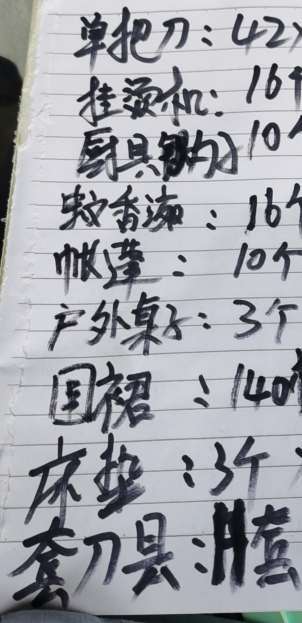 单把刀：42
挂烫机：16个
厨具钩子10个
蚊香液：16个
帐篷：10个
户外桌子：3个
围裙：140个
床垫：3个
套刀具：套